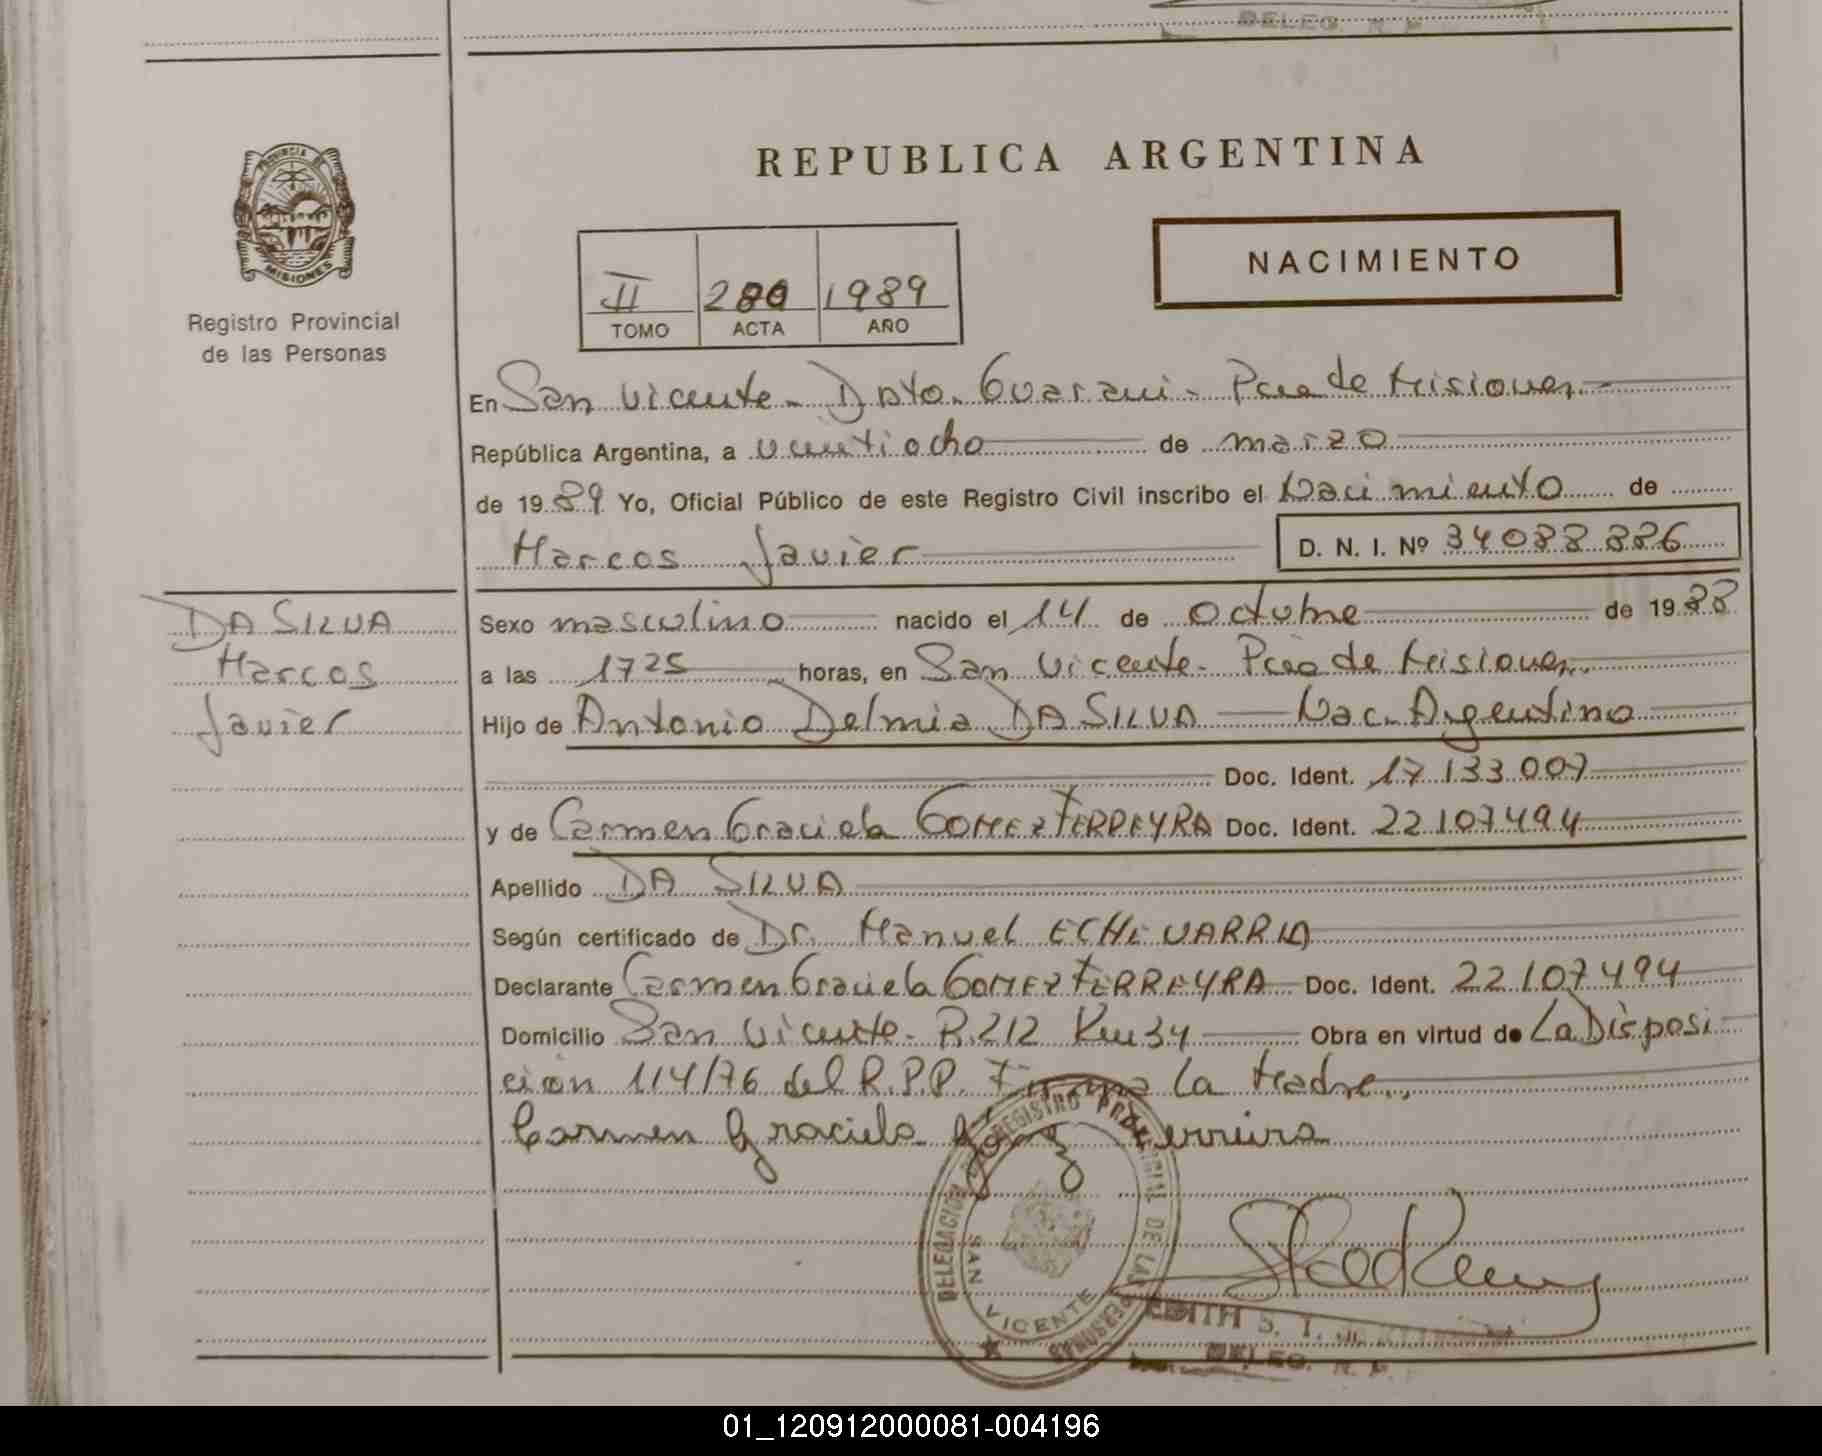 DELEG. R. P.
REPUBLICA ARGENTINA
PROVINCIA DE
MISIONES
Registro Provincial
de las Personas
II 280 1989
TOMO ACTA AÑO
NACIMIENTO
En San Vicente - Dpto. Guarani - Pcia de Misiones.-
República Argentina, a veintiocho de marzo
de 1989 Yo, Oficial Público de este Registro Civil inscribo el Nacimiento de
Marcos Javier D. N. I. Nº 34088886
DA SILVA
Marcos
Javier
Sexo masculino nacido el 14 de octubre de 1988
a las 1725 horas, en San Vicente - Pcia de Misiones.
Hijo de Antonio Delmia DA SILVA — Nac. Argentino
Doc. Ident. 17.133.007
y de Carmen Graciela GOMEZ FERREYRA Doc. Ident. 22.107.494
Apellido DA SILVA
Según certificado de Dr. Manuel ECHEVARRIA
Declarante Carmen Graciela GOMEZ FERREYRA Doc. Ident. 22.107.494
Domicilio San Vicente - R.212 Km 34 Obra en virtud de La Disposi
cion 114/76 del R.P.P. Firma la Madre..
Carmen Graciela Gómez Ferreira
DELEGACION REGISTRO PROVINCIAL DE LAS PERSONAS
SAN VICENTE
EDITH S. T.
DELEG. R. P.
01_120912000081-004196